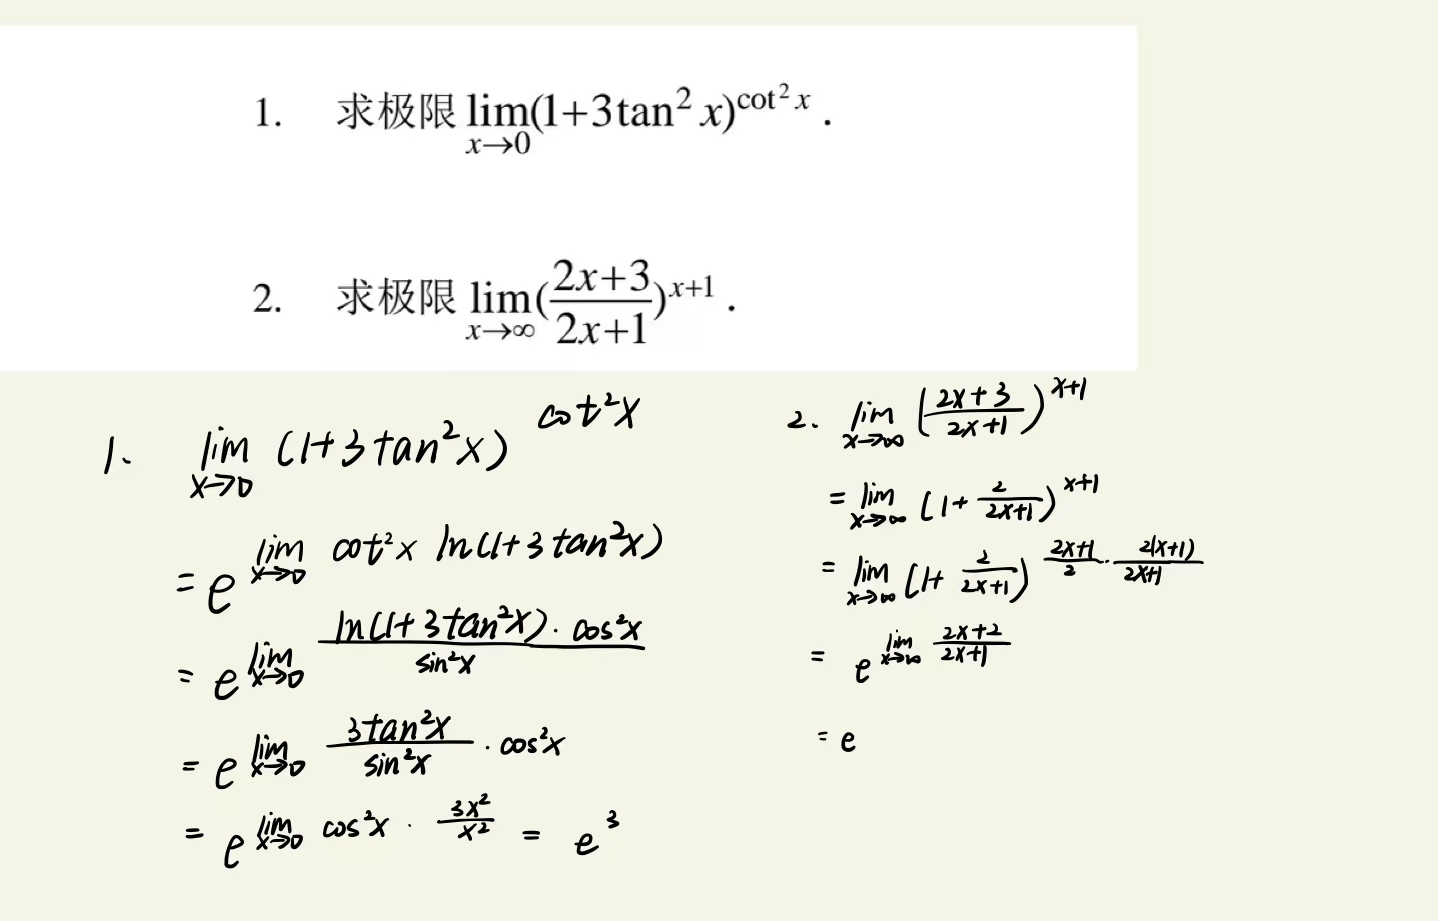 1. 求极限 lim_{x→0}(1+3tan² x)^{cot² x} .
2. 求极限 lim_{x→∞}(\frac{2x+3}{2x+1})^{x+1} .
1、 lim_{x→0} (1+3tan²x)^{cot²x}
= e^{lim_{x→0} cot²x ln(1+3tan²x)}
= e^{lim_{x→0} \frac{ln(1+3tan²x)·cos²x}{sin²x}}
= e^{lim_{x→0} \frac{3tan²x}{sin²x}·cos²x}
= e^{lim_{x→0} cos²x · \frac{3x²}{x²}} = e³
2. lim_{x→∞} (\frac{2x+3}{2x+1})^{x+1}
= lim_{x→∞} (1+\frac{2}{2x+1})^{x+1}
= lim_{x→∞} (1+\frac{2}{2x+1})^{\frac{2x+1}{2}·\frac{2(x+1)}{2x+1}}
= e^{lim_{x→∞} \frac{2x+2}{2x+1}}
= e